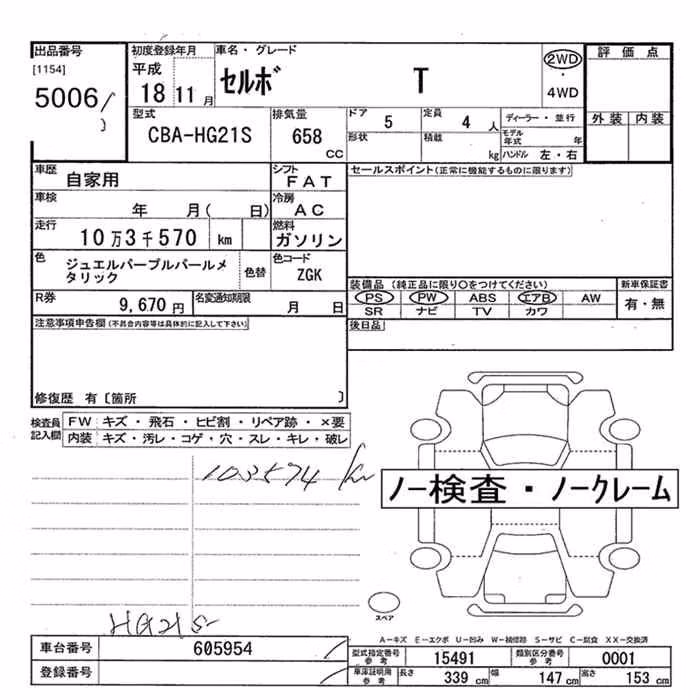 出品番号
[1154]
5006
初度登録年月
平成
18 11 月
車名・グレード
セルボ T
2WD
・
4WD
評価点
外装 内装
型式
CBA-HG21S
排気量
658
CC
ドア 5
形状
定員 4 人
積載 kg
ディーラー・並行
モデル年式 年
ハンドル 左・右
車歴 自家用
シフト FAT
セールスポイント(正常に機能するものに限ります)
車検 年 月( 日)
冷房 AC
走行 10万3千570 km
燃料 ガソリン
色 ジュエルパープルパールメタリック
色替
色コード ZGK
装備品(純正品に限り○をつけてください)
新車保証書
PS PW ABS エアB AW
有・無
SR ナビ TV カワ
R券 9,670 円
名変通知期限 月 日
後日品
注意事項申告欄(不具合内容等は具体的に記入して下さい)
修復歴 有〔箇所 〕
検査員記入欄
FW キズ・飛石・ヒビ割・リペア跡・×要
内装 キズ・汚レ・コゲ・穴・スレ・キレ・破レ
103574 km
ノー検査・ノークレーム
スペア
HG21S-
A−キズ E−エクボ U−凹み W−補修跡 S−サビ C−腐食 XX−交換済
車台番号 605954
登録番号
型式指定番号 参考 15491
類別区分番号 参考 0001
車庫証明用 参考 長さ 339 cm 幅 147 cm 高さ 153 cm